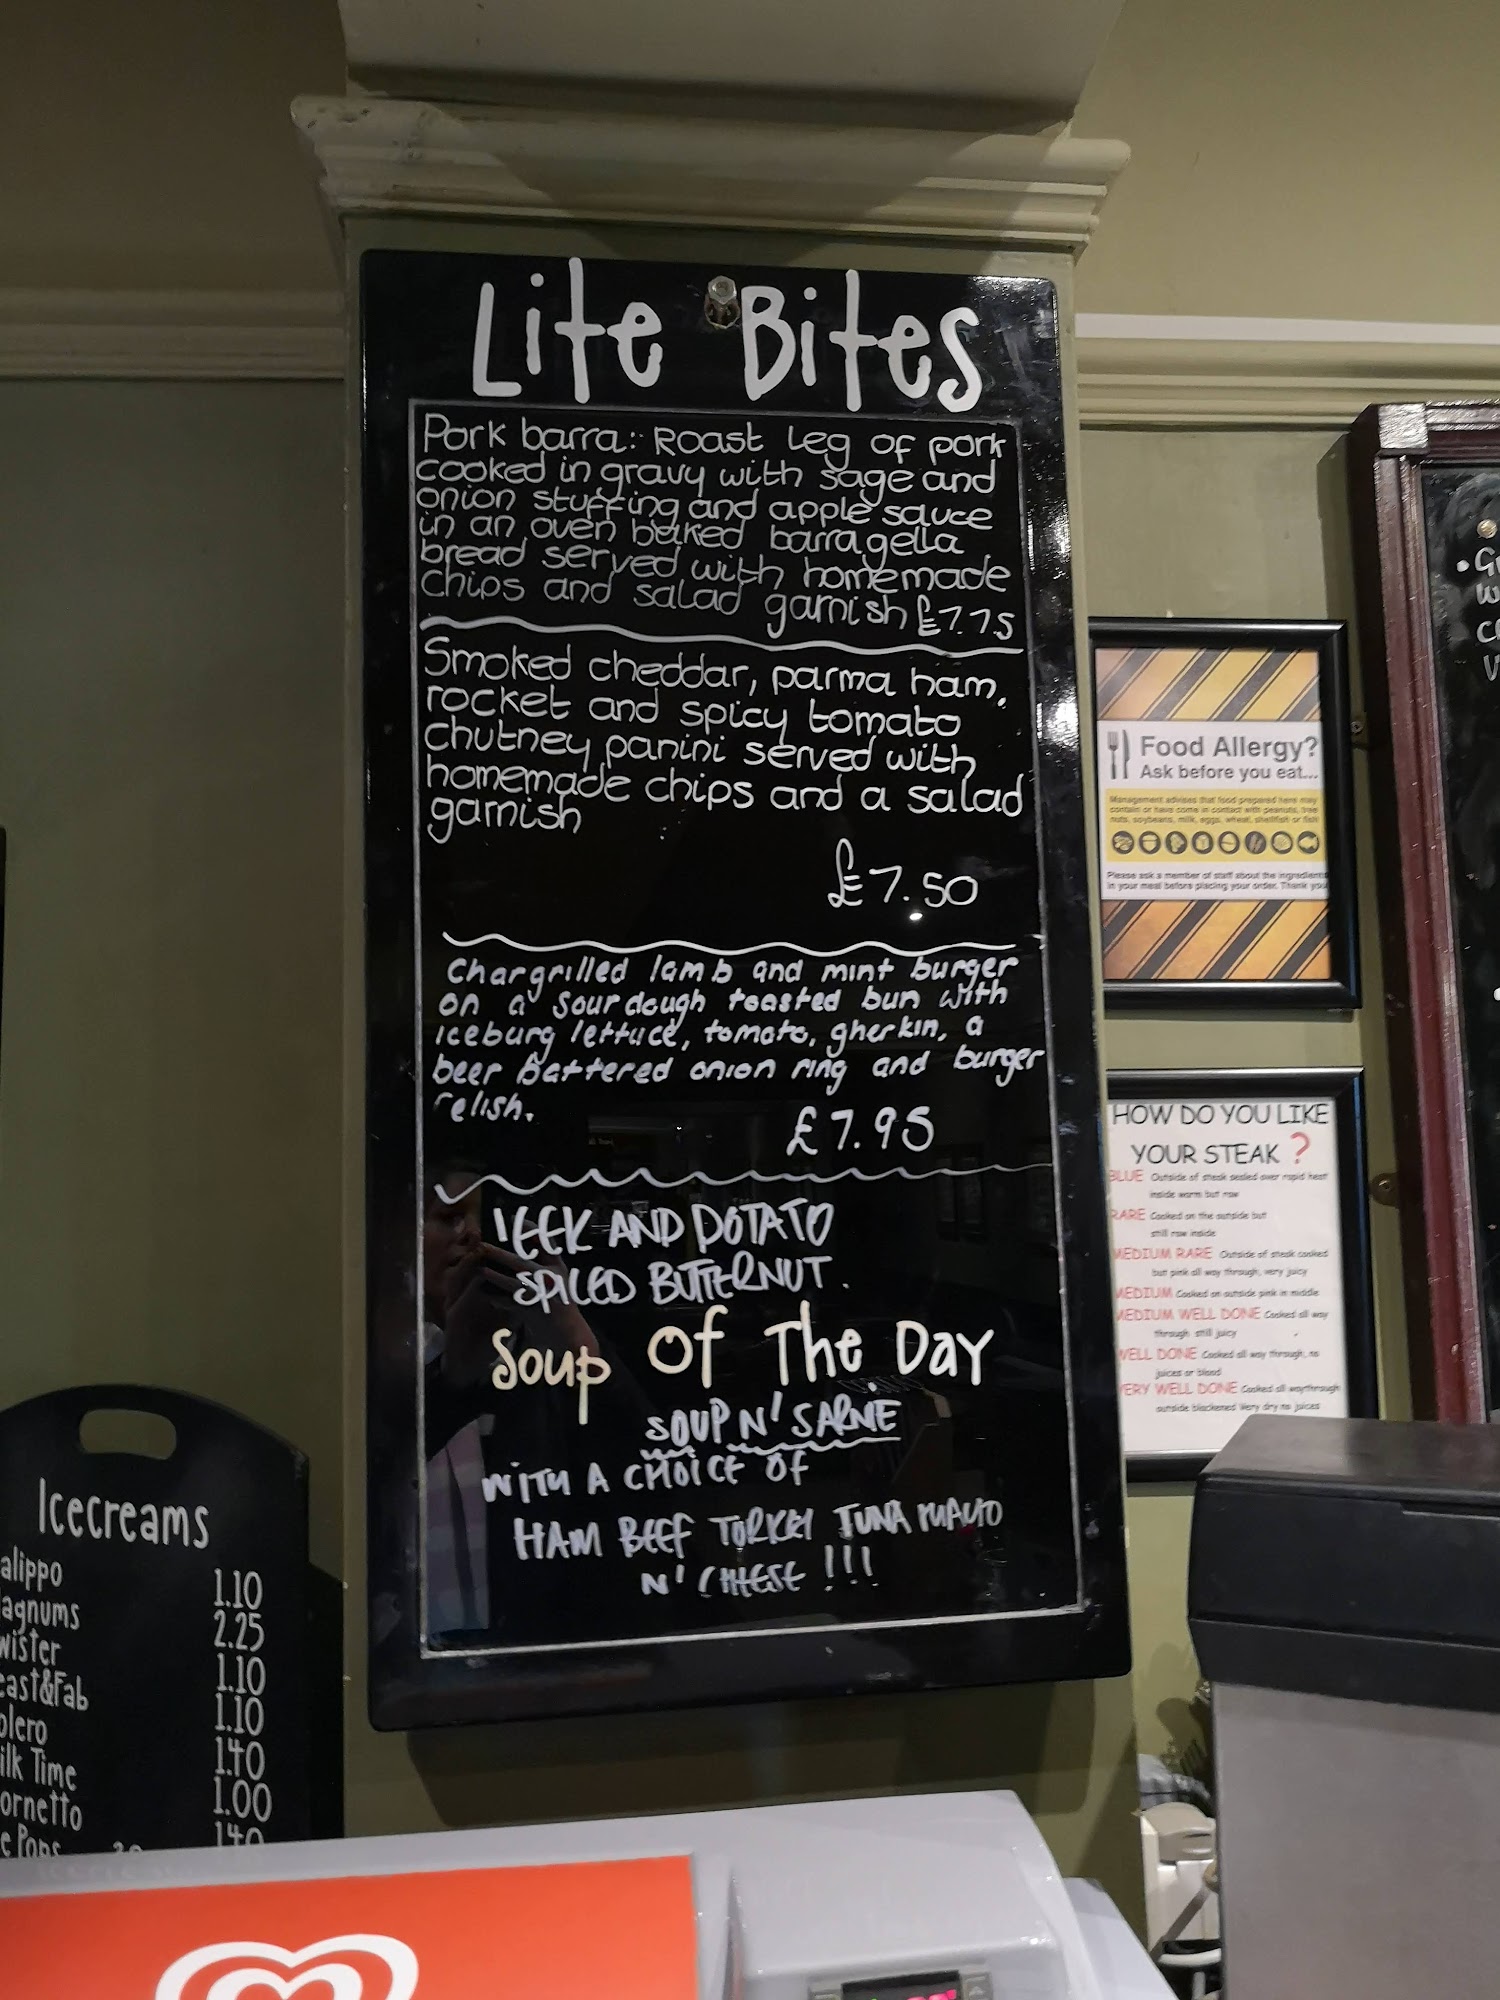 Lite Bites
Pork barra: Roast Leg of pork
cooked in gravy with sage and
onion stuffing and apple sauce
in an oven baked barra gella
bread served with homemade
chips and salad garnish £7.75
Smoked cheddar, parma ham,
rocket and spicy tomato
chutney panini served with
homemade chips and a salad
garnish
£7.50
Chargrilled lamb and mint burger
on a sourdough toasted bun with
iceburg lettuce, tomato, gherkin, a
beer battered onion ring and burger
relish.
£7.95
LEEK AND POTATO
SPICED BUTTERNUT.
Soup Of The Day
SOUP N' SARNIE
WITH A CHOICE OF
HAM BEEF TURKEY TUNA MAYO
N' CHEESE !!!
Food Allergy?
Ask before you eat...
Management advises that food prepared here may
contain or have come in contact with peanuts, tree
nuts, soybeans, milk, eggs, wheat, shellfish or fish
Please ask a member of staff about the ingredients
in your meal before placing your order. Thank you
HOW DO YOU LIKE
YOUR STEAK ?
BLUE Outside of steak sealed over rapid heat
inside warm but raw
RARE Cooked on the outside but
still raw inside
MEDIUM RARE Outside of steak cooked
but pink all way through, very juicy
MEDIUM Cooked on outside pink in middle
MEDIUM WELL DONE Cooked all way
through still juicy
WELL DONE Cooked all way through, no
juices or blood
VERY WELL DONE Cooked all waythrough
outside blackened Very dry no juices
Icecreams
alippo 1.10
agnums 2.25
wister 1.10
east&Fab 1.10
olero 1.40
ilk Time 1.00
ornetto 1.40
e Pops